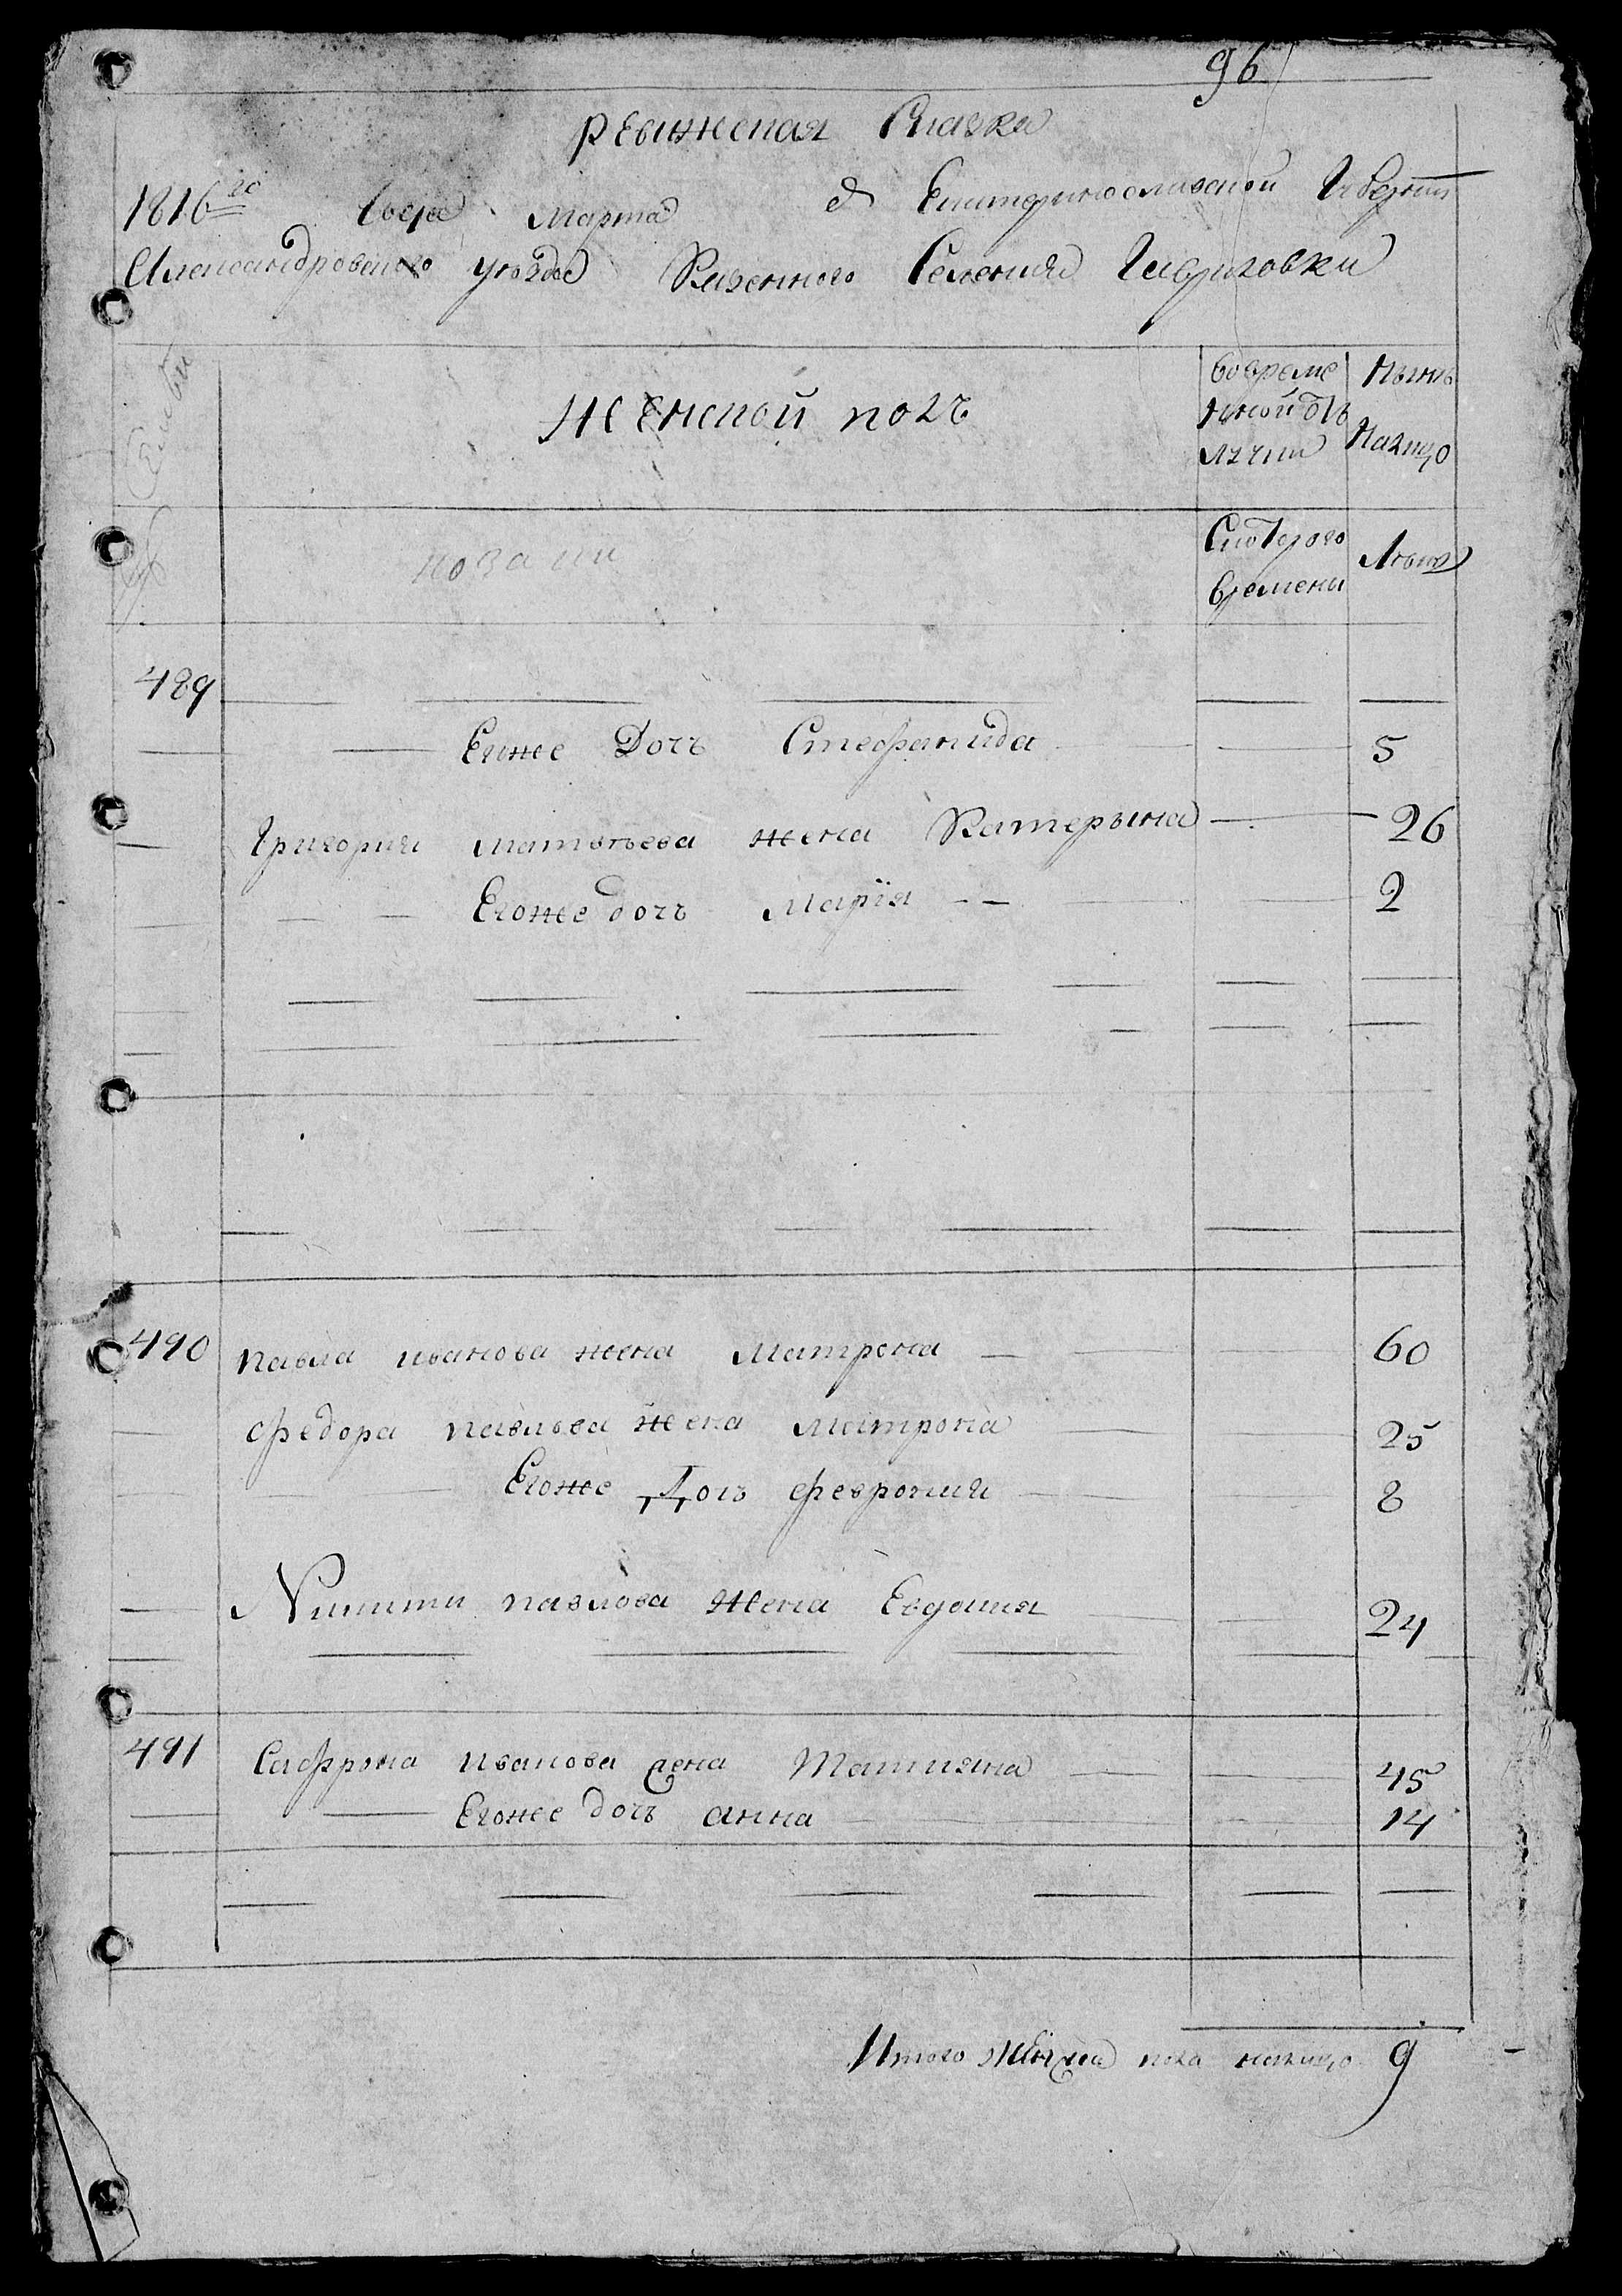 96
Ревижская Сказка
1816го Года Марта д Екатеринославской Губернии
Александровского уезда Казенного Селения Гавриловки
Семьи
женской полъ
Вовреме
нной отъ
лучки
Нынѣ
Налицо
Скоторого
времени
Лѣта
489
Егоже Дочъ Стефанида 5
Григория Матвѣева жена Катерына 26
Егоже дочъ Марїя 2
490 Павла иванова жена Матрона 60
Федора павлова жена Матрона 25
Егоже Дочъ феврония 8
Никити павлова жена Евдокия 24
491 Сафрона иванова жена Татияна 45
Егоже дочъ анна 14
Итого женска пола налицо 9